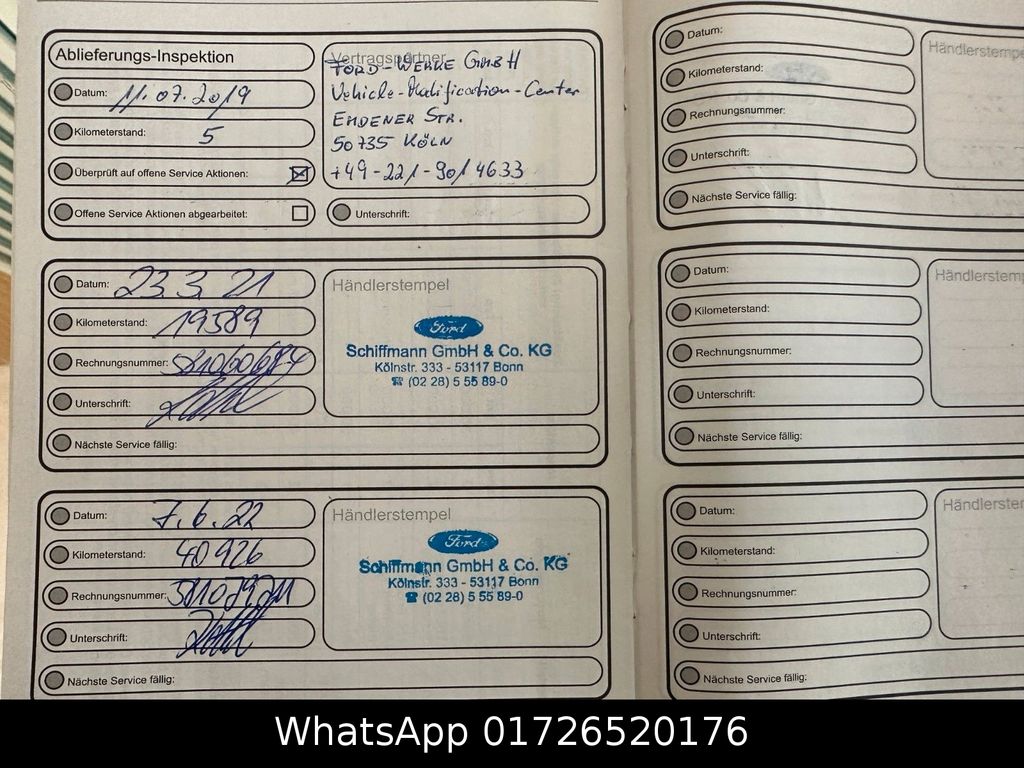 Ablieferungs-Inspektion
Datum: 11.07.2019
Kilometerstand: 5
Überprüft auf offene Service Aktionen:
Offene Service Aktionen abgearbeitet:
Vertragspartner
FORD-WERKE GMBH
Vehicle-Modification-Center
EMDENER STR.
50735 KÖLN
+49-221-901 4633
Unterschrift:
Datum: 23.3.21
Kilometerstand: 19589
Rechnungsnummer:
Unterschrift:
Nächste Service fällig:
Händlerstempel
Ford
Schiffmann GmbH & Co. KG
Kölnstr. 333 - 53117 Bonn
☎ (02 28) 5 55 89-0
Datum: 7.6.22
Kilometerstand: 40926
Rechnungsnummer:
Unterschrift:
Nächste Service fällig:
Händlerstempel
Ford
Schiffmann GmbH & Co. KG
Kölnstr. 333 - 53117 Bonn
☎ (02 28) 5 55 89-0
Datum:
Kilometerstand:
Rechnungsnummer:
Unterschrift:
Nächste Service fällig:
Händlerstempe
Datum:
Kilometerstand:
Rechnungsnummer:
Unterschrift:
Nächste Service fällig:
Händlerstemp
Datum:
Kilometerstand:
Rechnungsnummer:
Unterschrift:
Nächste Service fällig:
Händlerster
WhatsApp 01726520176